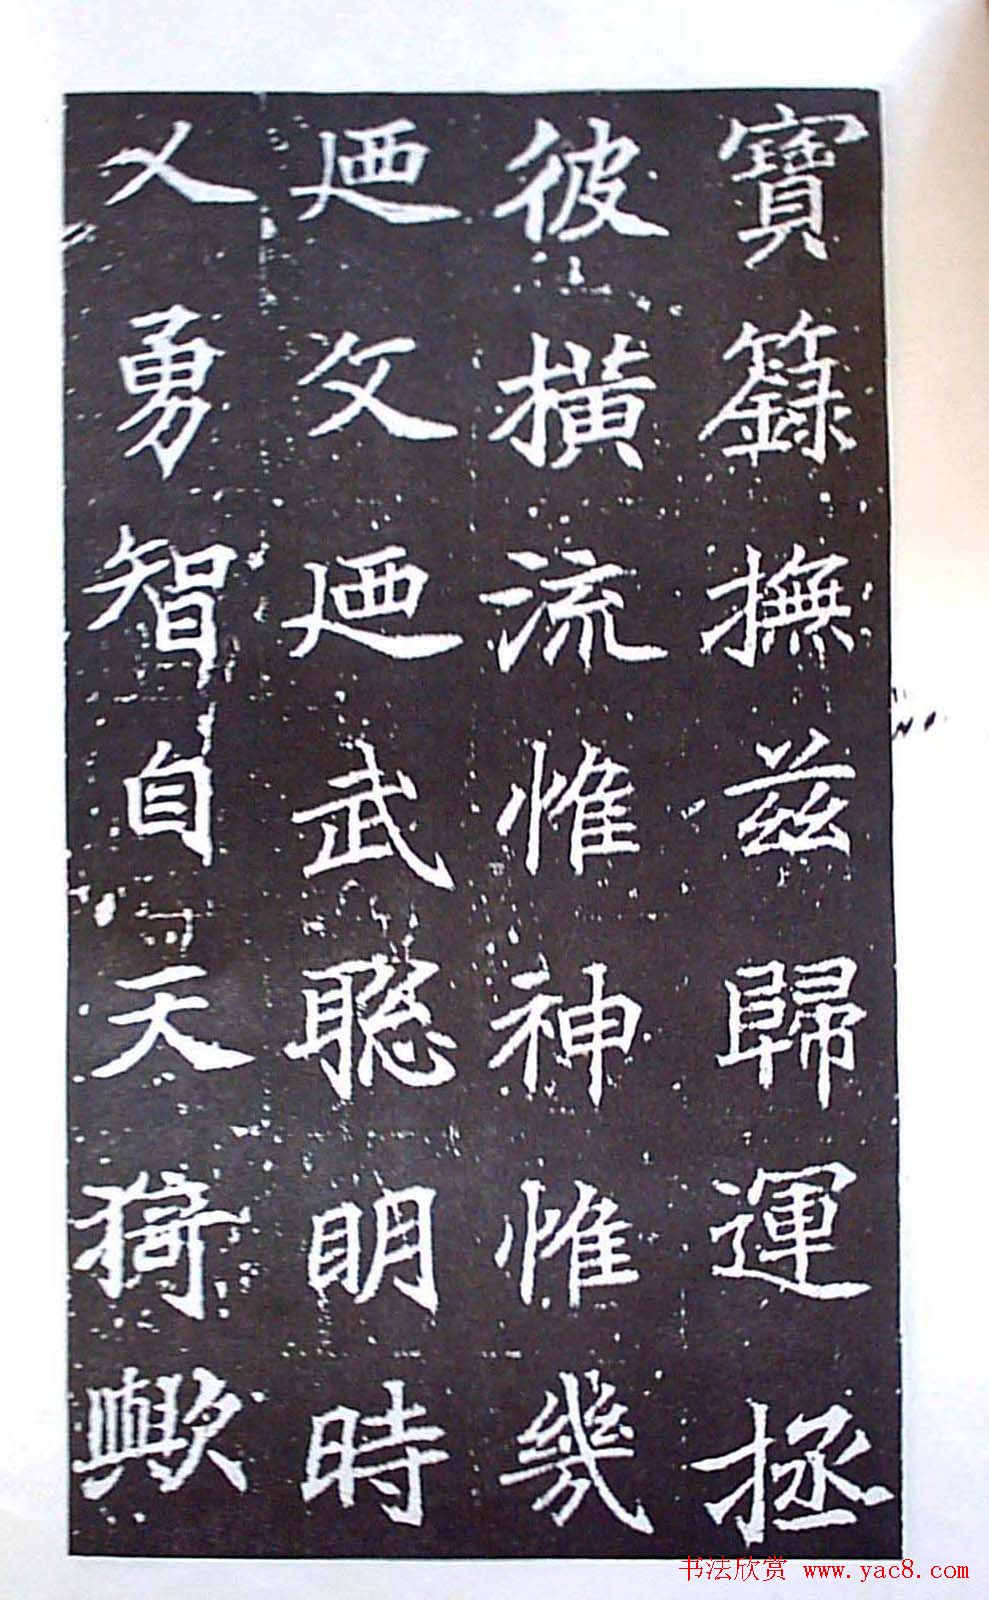 寶籙撫茲歸運拯
彼橫流惟神惟幾
迺文迺武聰明時
乂勇智自天猗歟
书法欣赏 www.yac8.com